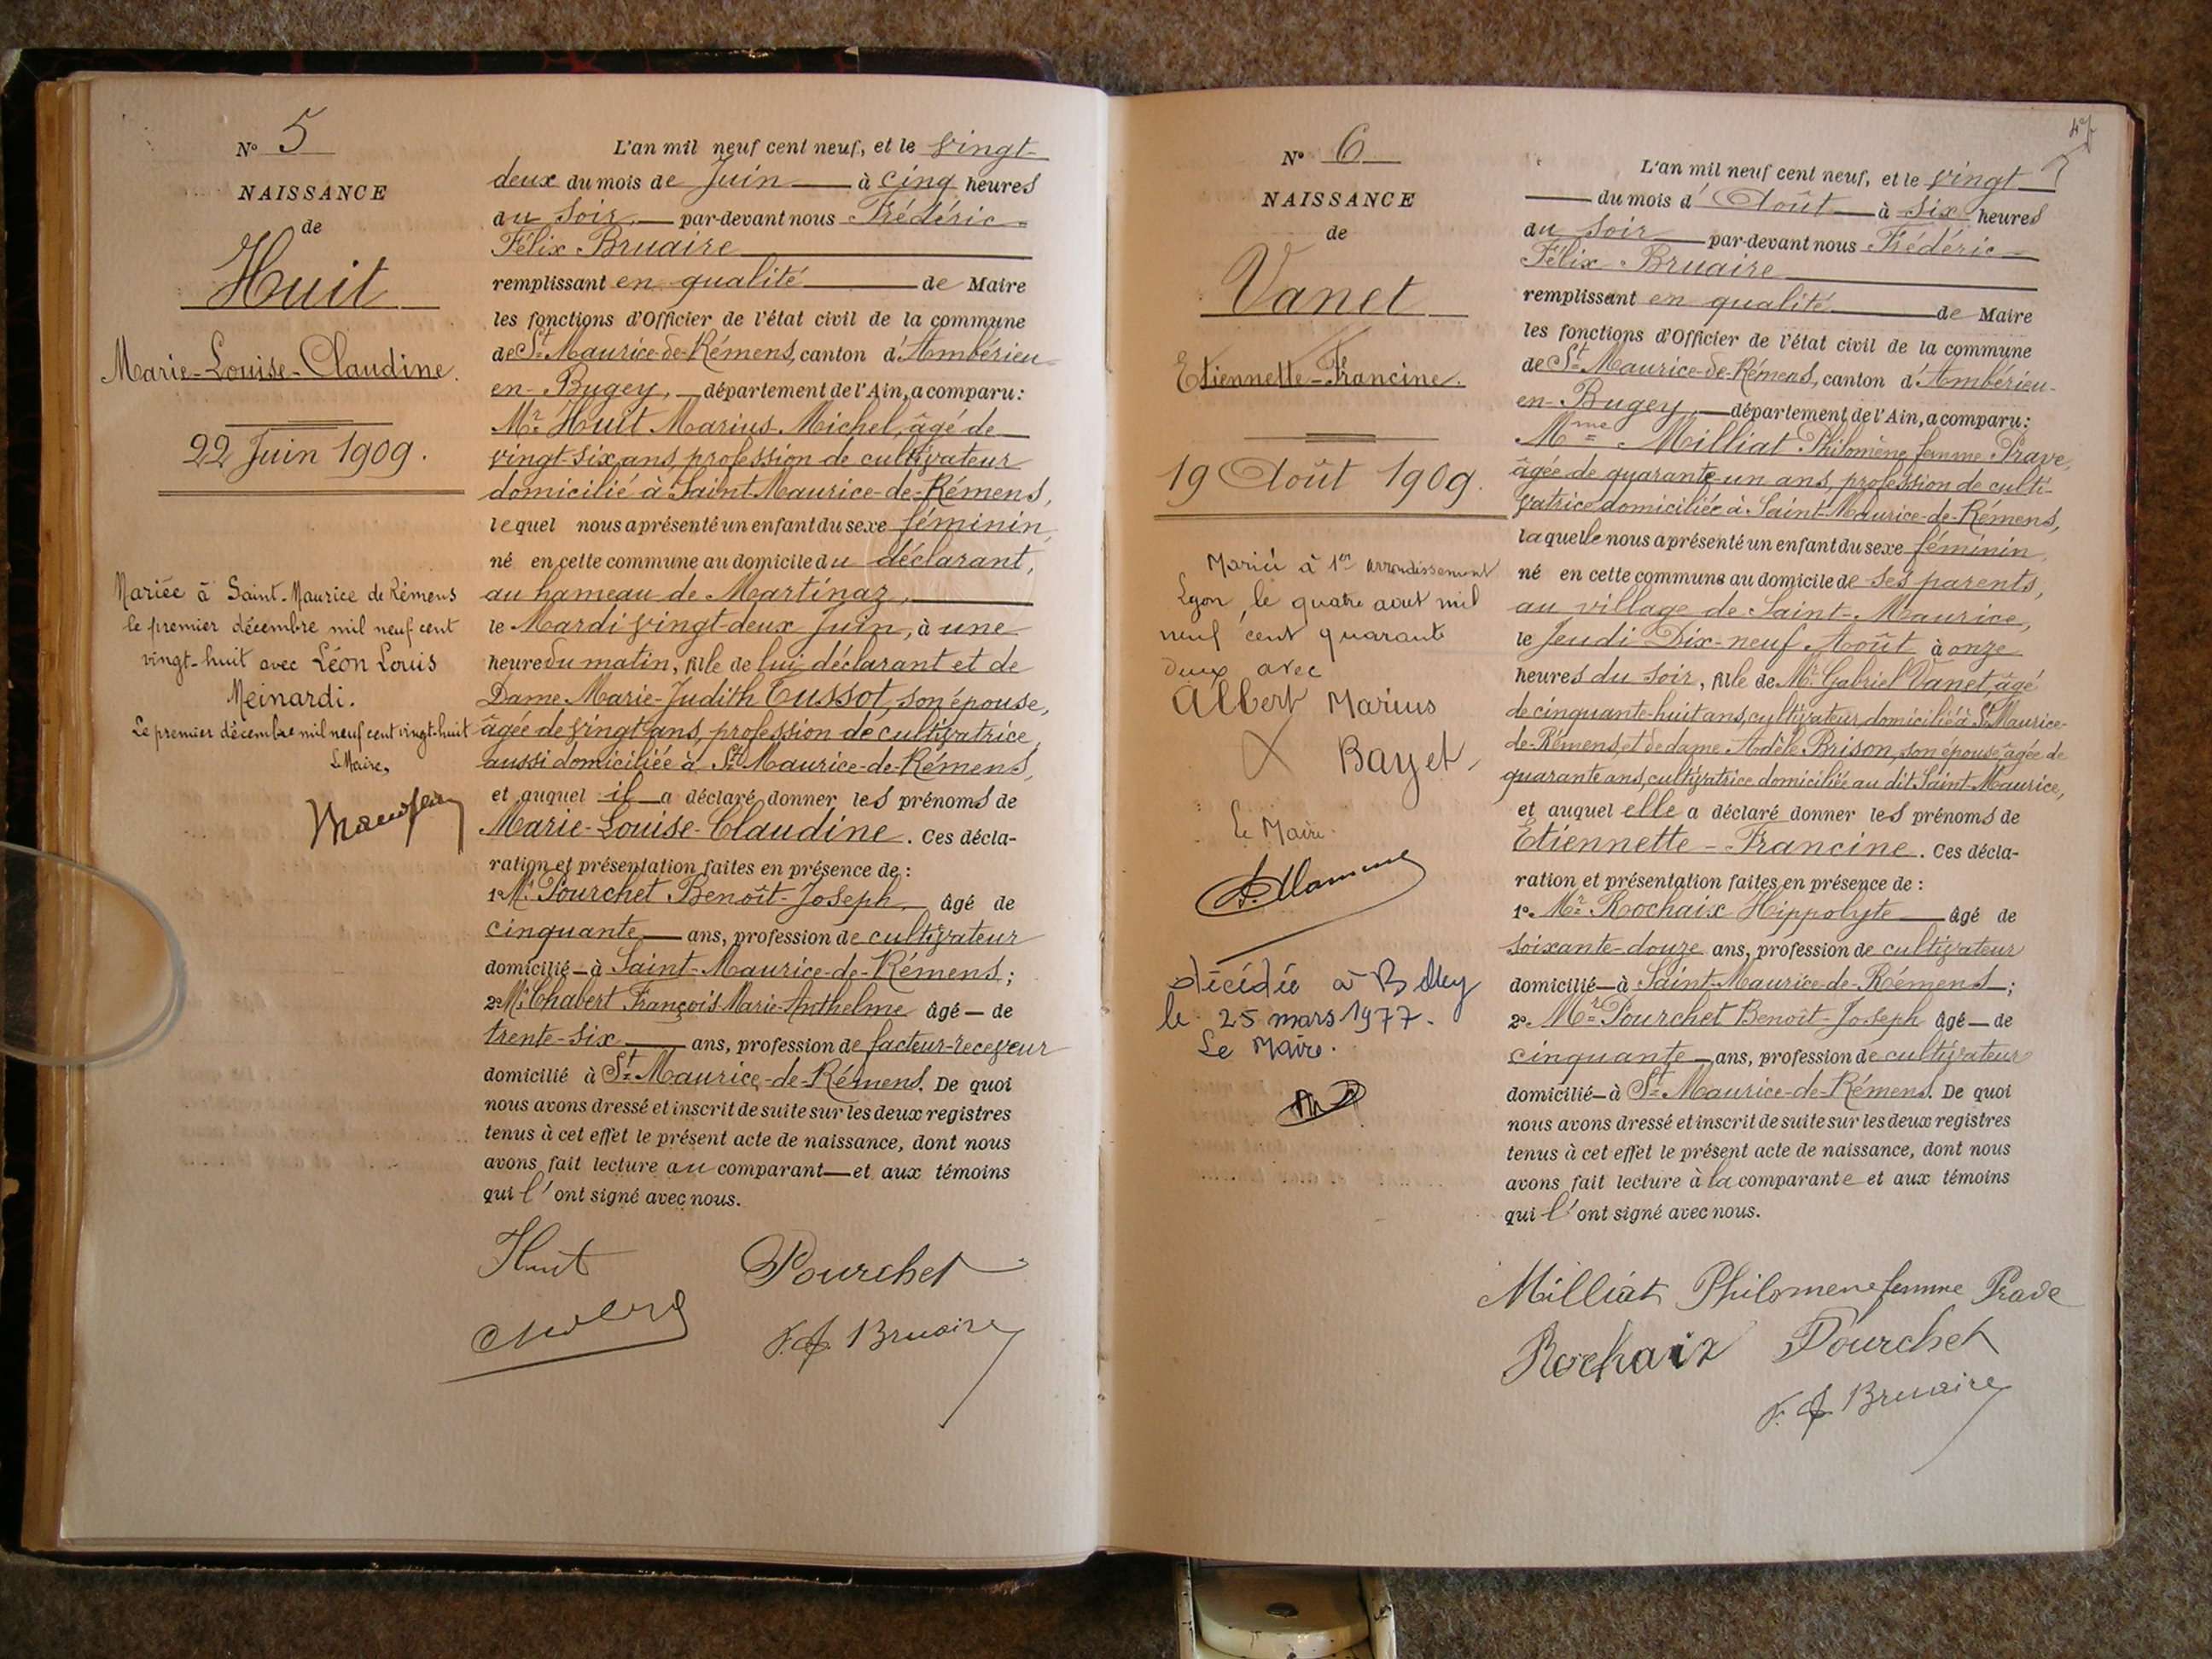 N° 5
NAISSANCE
de
Huit
Marie-Louise-Claudine.
22 Juin 1909.
Mariée à Saint-Maurice de Rémens
le premier décembre mil neuf cent
vingt-huit avec Léon Louis
Meinardi.
Le premier décembre mil neuf cent vingt-huit
Le Maire,
L'an mil neuf cent neuf, et le vingt-
deux du mois de Juin à cinq heures
du soir, par-devant nous Frédéric-
Félix Bruaire
remplissant en qualité de Maire
les fonctions d'Officier de l'état civil de la commune
de St Maurice-de-Rémens, canton d'Ambérieu-
en-Bugey, département de l'Ain, a comparu:
Mr Huit Marius Michel, âgé de
vingt-six ans, profession de cultivateur
domicilié à Saint-Maurice-de-Rémens,
lequel nous a présenté un enfant du sexe féminin,
né en cette commune au domicile du déclarant,
au hameau de Martinaz,
le Mardi vingt-deux Juin, à une
heure du matin, fille de lui, déclarant et de
Dame Marie-Judith Tussot, son épouse,
âgée de vingt ans, profession de cultivatrice,
aussi domiciliée à St Maurice-de-Rémens,
et auquel il a déclaré donner les prénoms de
Marie-Louise-Claudine. Ces décla-
ration et présentation faites en présence de :
1° Mr Pourchet Benoît-Joseph, âgé de
cinquante ans, profession de cultivateur
domicilié à Saint-Maurice-de-Rémens;
2° Mr Chabert François Marie-Anthelme âgé de
trente-six ans, profession de facteur-receveur
domicilié à St Maurice-de-Rémens. De quoi
nous avons dressé et inscrit de suite sur les deux registres
tenus à cet effet le présent acte de naissance, dont nous
avons fait lecture au comparant et aux témoins
qui l'ont signé avec nous.
Huit Pourchet
F. F. Bruaire
N° 6
NAISSANCE
de
Vanet
Etiennette-Francine.
19 Août 1909.
Mariée à 1er arrondissement
Lyon, le quatre aout mil
neuf cent quarante
deux avec
Albert Marius
Bayet
Le Maire.
décédée à Belley
le 25 mars 1977.
Le Maire.
L'an mil neuf cent neuf, et le vingt
du mois d'Août à six heures
du soir par-devant nous Frédéric-
Félix Bruaire
remplissant en qualité de Maire
les fonctions d'Officier de l'état civil de la commune
de St Maurice-de-Rémens, canton d'Ambérieu-
en-Bugey, département de l'Ain, a comparu:
Mme Milliat Philomène femme Prave,
âgée de quarante-un ans, profession de culti-
vatrice domiciliée à Saint-Maurice-de-Rémens,
laquelle nous a présenté un enfant du sexe féminin,
né en cette commune au domicile de ses parents,
au village de Saint-Maurice,
le Jeudi Dix-neuf Août à onze
heures du soir, fille de Mr Gabriel Vanet, âgé
de cinquante-huit ans, cultivateur, domicilié à St Maurice-
de-Rémens, et de dame Adèle Brison, son épouse, âgée de
quarante ans, cultivatrice domiciliée au dit Saint-Maurice,
et auquel elle a déclaré donner les prénoms de
Etiennette-Francine. Ces décla-
ration et présentation faites en présence de :
1° Mr Rochaix Hippolyte âgé de
soixante-douze ans, profession de cultivateur
domicilié à Saint-Maurice-de-Rémens;
2° Mr Pourchet Benoît-Joseph âgé de
cinquante ans, profession de cultivateur
domicilié à St Maurice-de-Rémens. De quoi
nous avons dressé et inscrit de suite sur les deux registres
tenus à cet effet le présent acte de naissance, dont nous
avons fait lecture à la comparante et aux témoins
qui l'ont signé avec nous.
Milliat Philomene femme Prave
Rochaix Pourchet
F. F. Bruaire